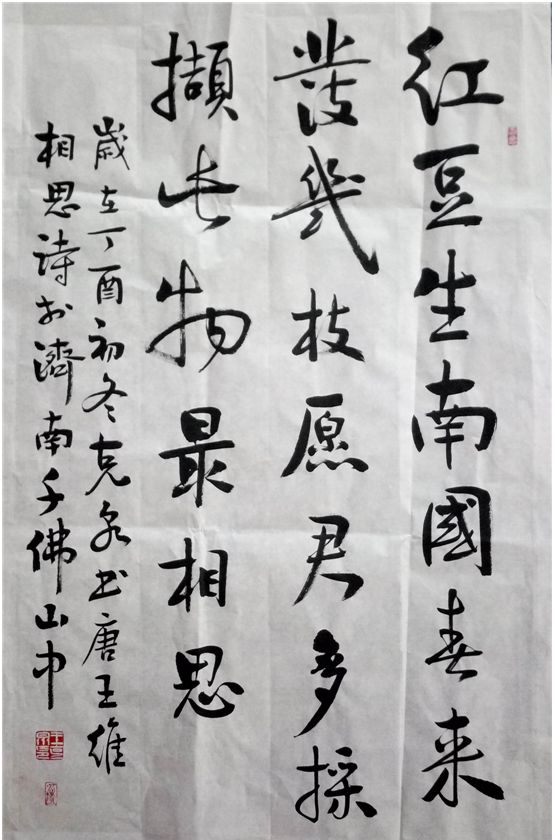 红豆生南國春来
發幾枝愿君多採
擷此物最相思
歲在丁酉初冬克泉书唐王維
相思诗於濟南千佛山中